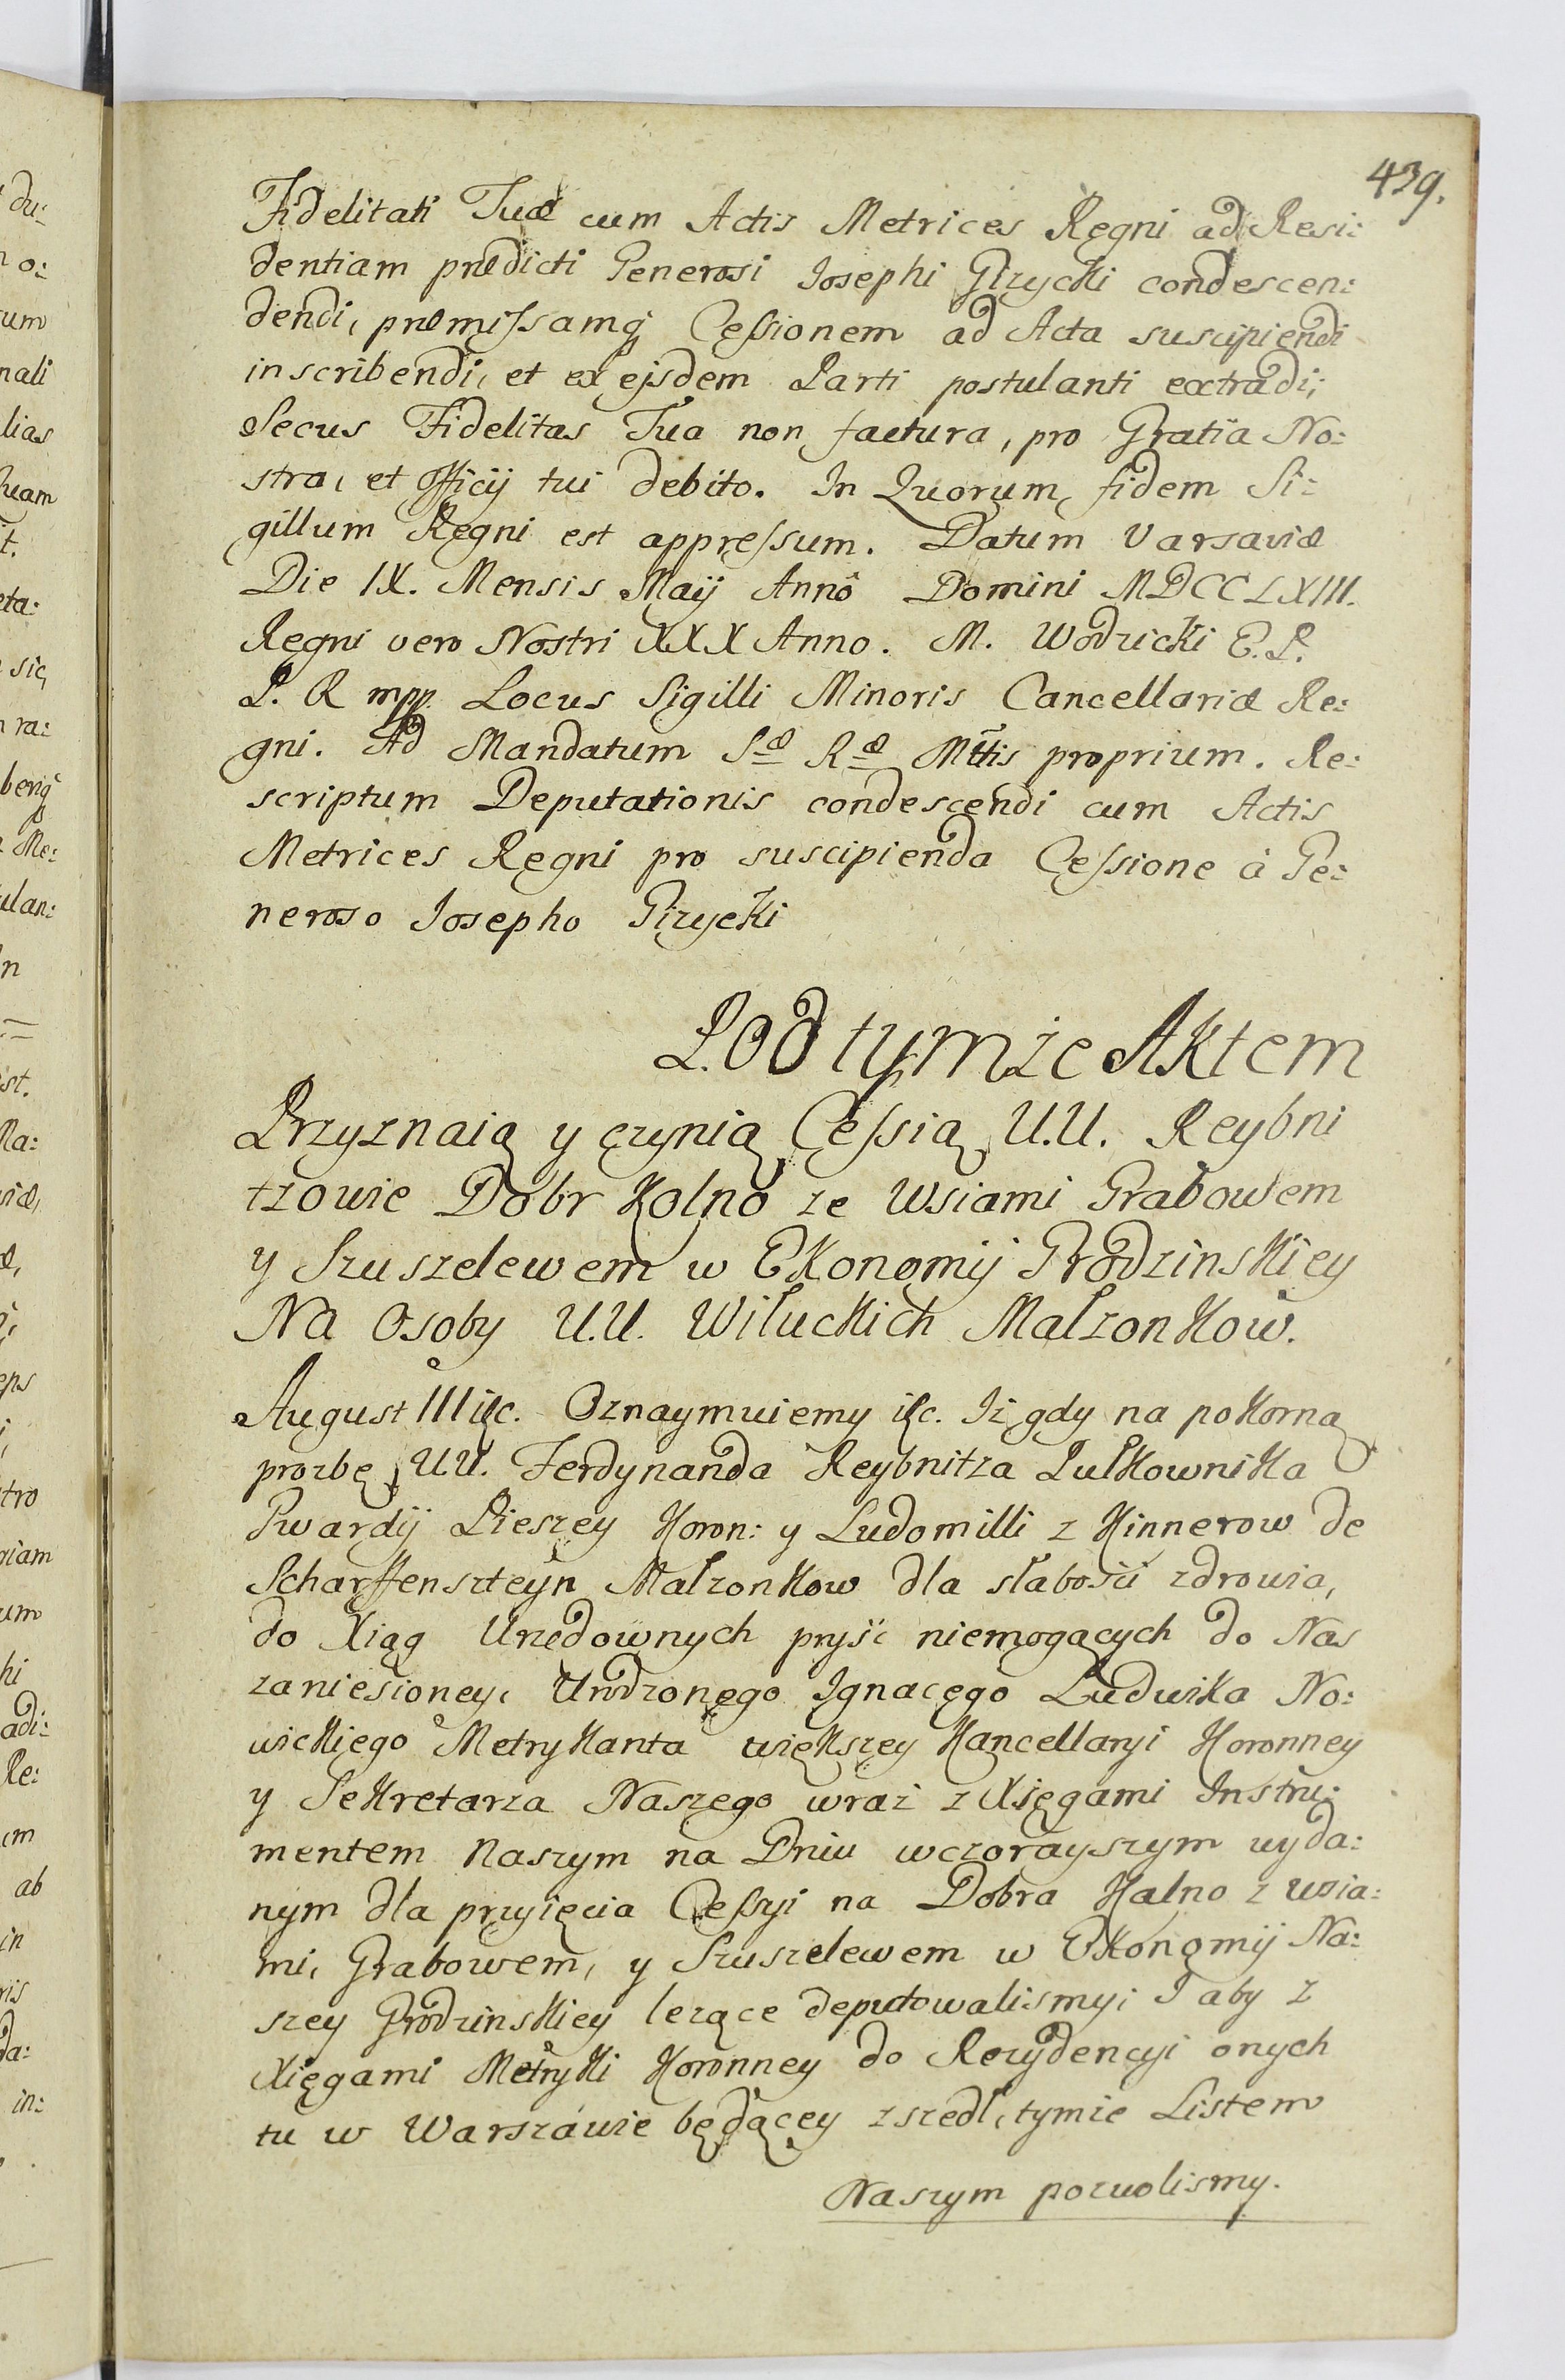 439.
Fidelitati Tuæ cum Actis Metrices Regni ad Resi:
dentiam prædicti Generosi Josephi Giżycki condescen:
dendi, præmissamq̃ Cessionem ad Acta suscipiendi
inscribendi, et ex ejsdem Parti postulanti extradi;
Secus Fidelitas Tua non factura, pro Gratia No:
stra, et Officij tui debito. In Quorum fidem Si:
gillum Regni est appressum. Datum Varsaviæ
Die IX. Mensis Maij Annô Domini MDCCLXIII.
Regni vero Nostri XXX Anno. M. Wodzicki E. P.
P. R mpp. Locus Sigilli Minoris Cancellariæ Re:
gni. Ad Mandatum Sæ Ræ Mttis proprium. Re:
scriptum Deputationis condescendi cum Actis
Metrices Regni pro suscipienda Cessione à Ge:
neroso Josepho Giżycki
Pod tymże Aktem
Przyznaią y czynią Cessią U.U. Reybni
tzowie Dobr Kolno ze Wsiami Grabowem
y Szuszelewem w Ekonomij Grodzinskiey
Na Osoby U.U. Wiłuckich Małzonkow.
August III &c. Oznaymuiemy &c. Iż gdy na pokorną
prozbę U.U. Ferdynanda Reybnitza Pułkownika
Gwardij Pieszey Koron: y Ludomilli z Hinnerow de
Scharffenszteyn Małzonkow dla słabości zdrowia,
do Xiąg Urzędownych pryść niemogących do Nas
zaniesioney, Urodzonego Ignacego Ludwika No:
wickiego Metrykanta większey Kancellaryi Koronney
y Sekretarza Naszego wraz z Xięgami Instru:
mentem Naszym na Dniu wczorayszym wyda:
nym dla przyięcia Cessyi na Dobra Kalno z wsia:
mi, Grabowem, y Szuszelewem w Ekonomij Na:
szey Grodzinskiey leżące deputowalismy; I aby z
Xięgami Metryki Koronney do Rezydencyi onych
tu w Warszawie będącey zszedł, tymże Listem
Naszym pozwolismy.